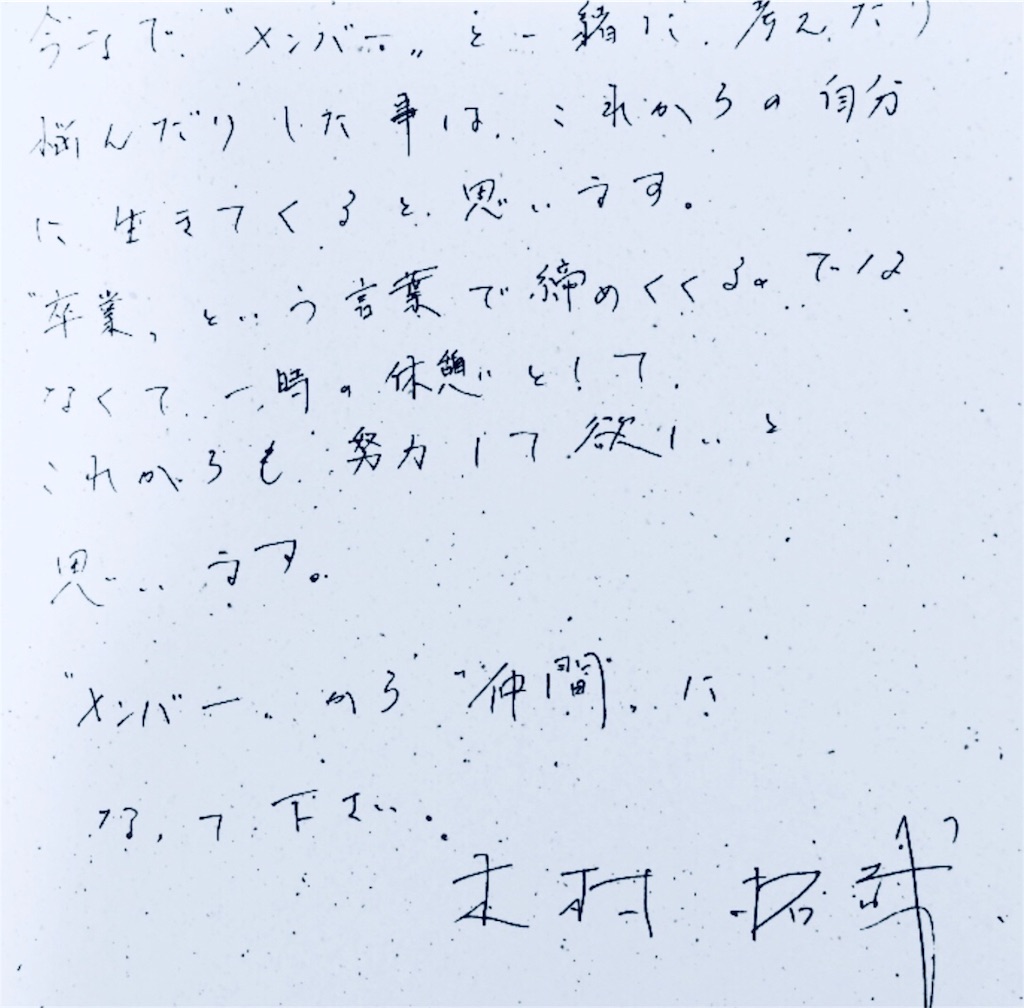 今まで〝メンバー〟と一緒に、考えたり
悩んだりした事は、これからの自分
に生きてくると思います。
〝卒業〟という言葉で締めくくるのではなく
なくて、一時の休憩として、
これからも努力して欲しいと
思います。
〝メンバー〟から〝仲間〟に
なって下さい。
木村拓哉